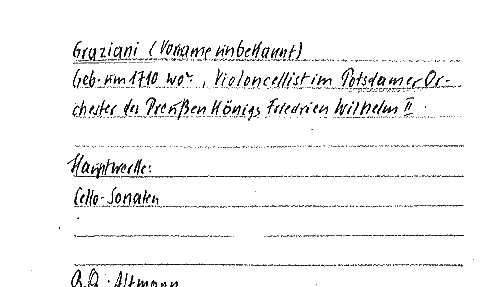 Graziani (Vorname unbekannt)
Geb. um 1710 wo?, Violoncellist im Potsdamer Or-
chester des Preußen Königs Friedrich Wilhelm II.
Hauptwerke:
Cello-Sonaten
Altmann